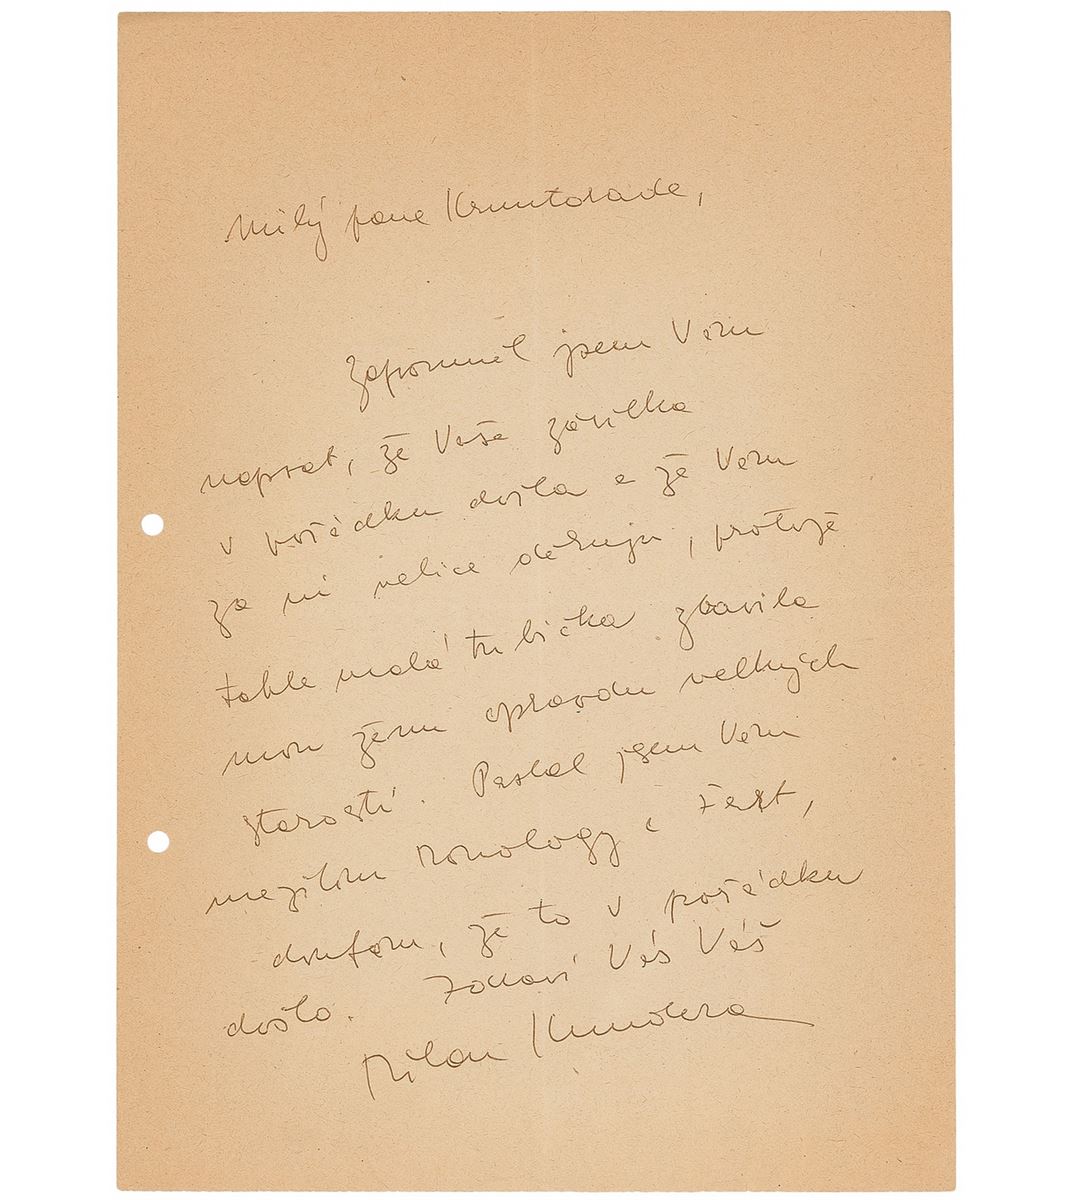 Milý pane Kruntorade,
Zapomněl jsem Vám
napsat, že Vaše zásilka
v pořádku došla a že Vám
za ni velice děkuju, protože
tahle malá trubička zbavila
mou ženu opravdu velkých
starostí. Poslal jsem Vám
mezitím Monology i
doufám, že to v pořádku
došlo. Zdraví Vás Váš
Milan Kundera